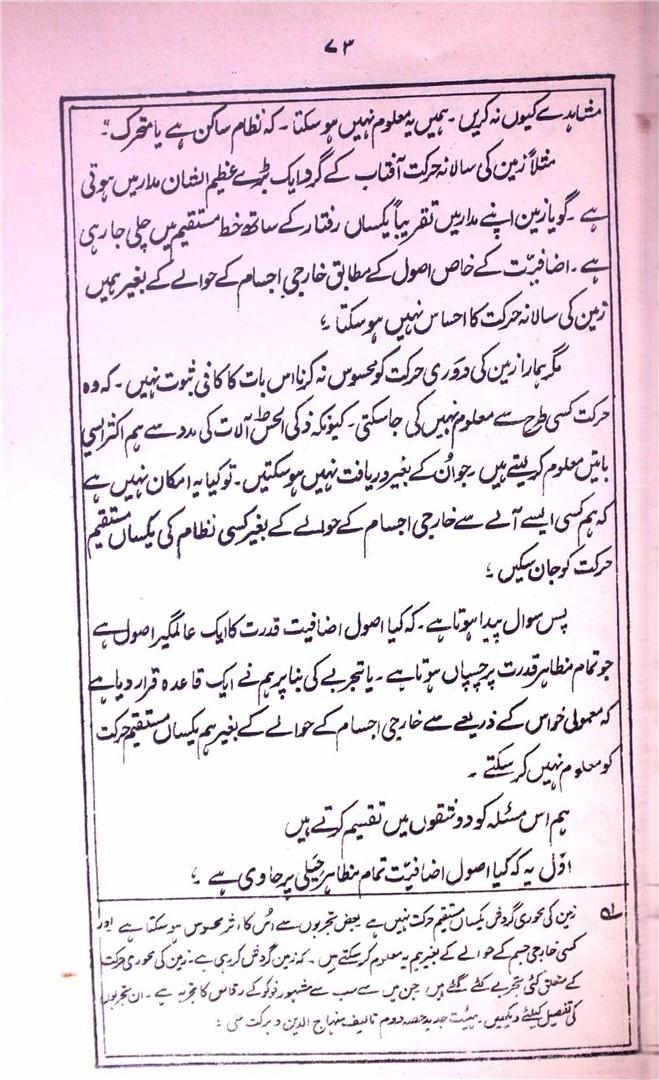 ۷۳
مشاہدے کیوں نہ کریں۔ ہمیں یہ معلوم نہیں ہو سکتا۔ کہ نظام ساکن ہے یا متحرک۔"
مثلاً زمین کی سالانہ حرکت آفتاب کے گرد ایک بڑے عظیم الشان مدار میں ہوتی
ہے۔ گویا زمین اپنے مدار میں تقریباً یکساں رفتار کے ساتھ خط مستقیم میں چلی جا رہی
ہے۔ اضافیّت کے خاص اصول کے مطابق خارجی اجسام کے حوالے کے بغیر ہمیں
زمین کی سالانہ حرکت کا احساس نہیں ہو سکتا۔؛
مگر ہمارا زمین کی دوری حرکت کو محسوس نہ کرنا اس بات کا کافی ثبوت نہیں۔ کہ وہ
حرکت کسی طرح سے معلوم نہیں کی جا سکتی۔ کیونکہ ذکی الحس آلات کی مدد سے ہم اکثر ایسی
باتیں معلوم کر لیتے ہیں۔ جو اُن کے بغیر دریافت نہیں ہو سکتیں۔ تو کیا یہ امکان نہیں ہے
کہ ہم کسی ایسے آلے سے خارجی اجسام کے حوالے کے بغیر کسی نظام کی یکساں مستقیم
حرکت کو جان سکیں۔؛
پس سوال پیدا ہوتا ہے۔ کہ کیا اصول اضافیت قدرت کا ایک عالمگیر اصول ہے
جو تمام مظاہر قدرت پر چسپاں ہوتا ہے۔ یا تجربے کی بنا پر ہم نے ایک قاعدہ قرار دیا ہے
کہ معمولی خواس کے ذریعے سے خارجی اجسام کے حوالے کے بغیر ہم یکساں مستقیم حرکت
کو معلوم نہیں کر سکتے۔
ہم اس مسئلہ کو دو شقوں میں تقسیم کرتے ہیں
اوّل یہ کہ کیا اصول اضافیّت تمام مظاہر حیلی پر حاوی ہے۔؛
لہ زمین کی محوری گردش یکساں مستقیم حرکت نہیں ہے بعض تجربوں سے اُس کا اثر محسوس ہو سکتا ہے اور
کسی خارجی جسم کے حوالے کے بغیر ہم یہ معلوم کر سکتے ہیں۔ کہ زمین گردش کر رہی ہے۔ زمین کی محوری حرکت
کے متعلق کئی تجربے کئے گئے ہیں جن میں سے سب سے مشہور فوکو کے رقاص کا تجربہ ہے۔ ان تجربوں
کی تفصیل کیلئے دیکھیں۔ ہیئت جدید حصہ دوم تالیف منہاج الدین و برکت علی؛